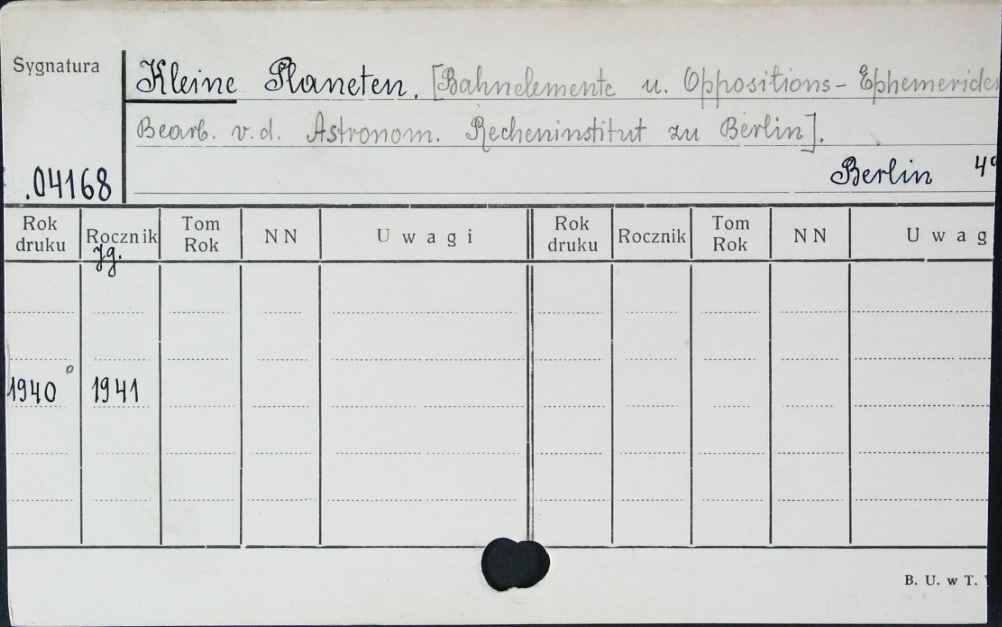 Sygnatura
Kleine Planeten. [Bahnelemente u. Oppositions-Ephemeride
Bearb. v.d. Astronom. Recheninstitut zu Berlin].
.04168
Berlin 4°
Rok druku Rocznik Tom Rok NN Uwagi Rok druku Rocznik Tom Rok NN Uwag
Jg.
1940° 1941
B. U. w T.